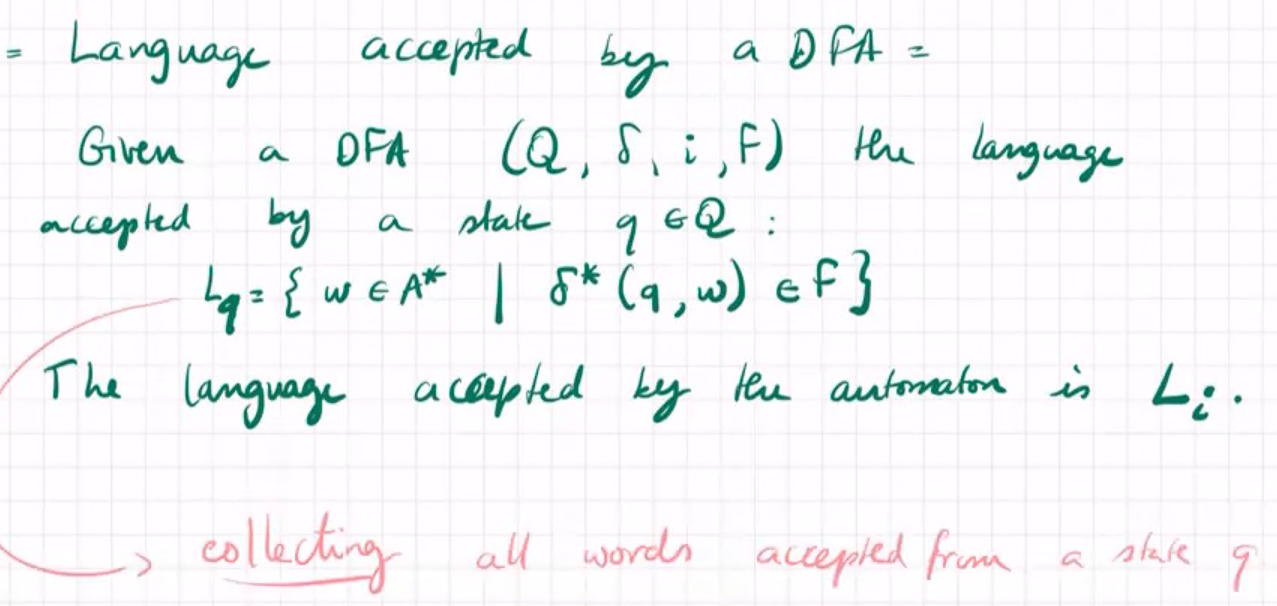 = Language accepted by a DFA =
Given a DFA (Q, δ, i, F) the language
accepted by a state q ∈ Q :
L_q = { w ∈ A* | δ* (q, w) ∈ F }
The language accepted by the automaton is L_i .
collecting all words accepted from a state q